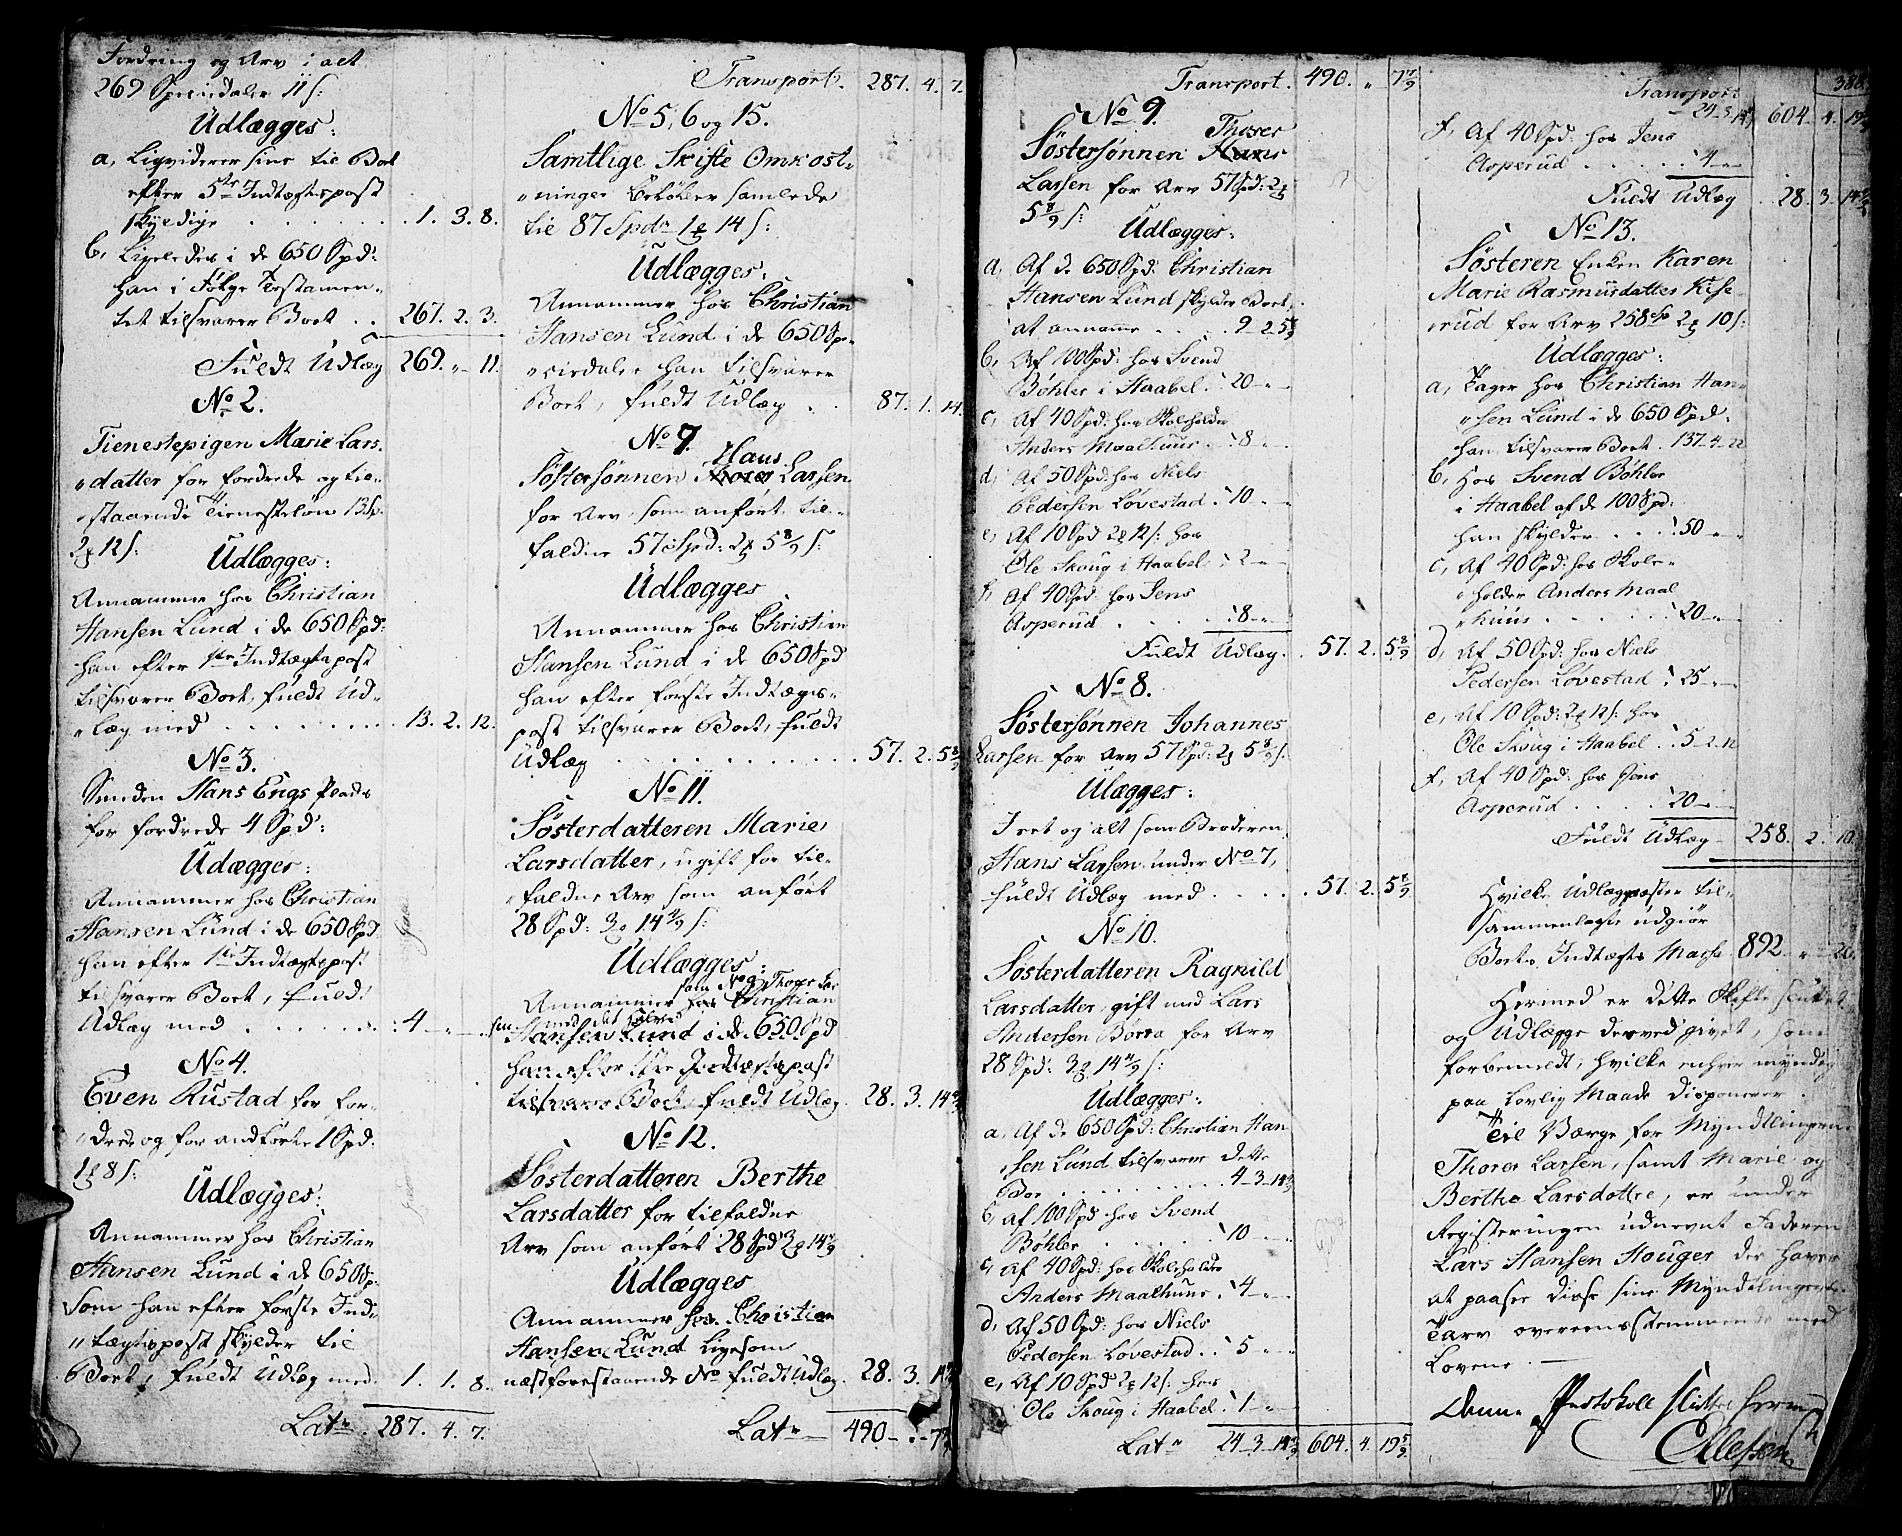 Fordring og Arv i alt
269 Speciedaler 11 s:
Udlægges:
a, Ligviderer sine til Boet
efter 5te Indtægtspost
skyldige . . . . 1. 3. 8.
b, Ligeledes i de 650 Spd:
han i Følge Testamen-
tet tilsvarer Boet . . 267. 2. 3.
Fuldt Udlæg 269. „ 11.
No 2.
Tienestepigen Marie Lars-
„datter for fordrede og til-
„staaende Tieneste løn 13 Sp.
2 ₰ 12 s:
Udlægges:
Annammer hos Christian
Hansen Lund i de 650 Spd:
han efter 1ste Indtægtspost
tilsvarer Boet, fuldt Ud-
„læg med . . . . . . . 13. 2. 12.
No 3.
Smeden Hans Engs Plads
for fordrede 4 Spd:
Udægges:
Annammer hos Christian
Hansen Lund i de 650 Spd
han efter 1ste Indtægtspost
tilsvarer Boet, fuldt
Udlæg med . . . . . . : 4 — „ —
No 4.
Even Rustad for for-
„drede og for 1 Spd:
1 ₰ 8 s:
Udlægges:
Annammer hos Christian
Hansen Lund i de 650 Sp.
som han efter første Ind-
„tægtspost skylder til
Boet, fuldt Udlæg med 1. 1. 8.
Lat. 287. 4. 7.
Transport. 287. 4. 7.
No 5, 6 og 15.
Samtlige Skifte Omkost-
„ninger beløber samlede
til 87 Spdr 1 ₰ 14 s:
Udlægges:
Annammer hos Christian
Hansen Lund i de 650 Spe-
„ciedaler han tilsvarer
Boet, fuldt Udlæg . . 87. 1. 14.
No 7.
Hans
Søstersønnen Thorer Larsen
for Arv som anført til-
faldne 57 Spd: 2 ₰ 5 8/9 s:
Udlægges
Annammer hos Christian
Hansen Lund i de 650 Spd
han efter første Indtægts-
post tilsvarer Boet, fuldt
Udlæg . . . . . . . . . . 57. 2. 5 8/9
No 11.
Søsterdatteren Marie
Larsdatter, ugift for til-
„faldne Arv som anført
28 Spd: 3 ₰ 14 4/9 s:
Udlægges:
som No 9 Thorer Lar
Annammer hos Christian
sen med det halve
Hansen Lund i de 650 Spd
han efter 1ste Indtægtspost
tilsvarer Boet, fuldt Udlæg. 28. 3. 14 4/9
No 12.
Søsterdatteren Berthe
Larsdatter for tilfaldne
Arv som anført 28 Spd 3 ₰ 14 4/9
Udlægges
Annammer hos Christian
Hansen Lund ligesom
næstforestaaende No fuldt Udlæg. 28. 3. 14 4/9
Lat. 490 — „ — 7 7/9
Transport. 490. „ 7 7/9
No 9.
Thorer
Søstersønnen Hans
Larsen for Arv 57 Spd: 2 ₰
5 8/9 s:
Udlægges:
a, Af de 650 Spd: Christian
Hansen Lund skylder Boet
at annamme . . . . 9 2 5 8/9
b, Af 100 Spd: hos Svend
Bøhler i Haabel . 20 — „ —
c, Af 40 Spd: hos Skoleholder
Anders Maalhuus . . 8 — „ —
d, Af 50 Spd: hos Niels
Pedersen Løvestad . 10 — „ —
e, Af 10 Spd 2 ₰ 12 s: hos
Ole Skoug i Haabel . 2 — „ —
f, Af 40 Spd: hos Jens
Asperud . . . . . 8 — „ —
Fuldt Udlæg. . 57. 2. 5 8/9
No 8.
Søstersønnen Johannes
Larsen for Arv 57 Spd: 2 ₰ 5 8/9 s:
Ulægges:
I ret og alt som Broderen
Hans Larsen under No 7,
fuldt Udlæg med . . . . . 57. 2. 5 8/9
No 10.
Søsterdatteren Ragnild
Larsdatter, gift med Lars
Andersen Borra for Arv
28 Spd: 3 ₰ 14 4/9 s:
Udlægges:
a, Af de 650 Spd: Christian Han
„sen Lund tilsvarer dette
Boe . . . . . . . . 4 — 3 — 14 4/9
b, Af 100 Spd hos Svend
Bøhler . . . . . 10 — „ —
c, Af 40 Spd: hos Skoleholder
Anders Maalhuus . 4 — „ —
d, Af 50 Spd: hos Niels
Pedersen Løvestad . . 5 „ „
e, Af 10 Spd 2 ₰ 12 s: hos
Ole Skoug i Haabel . 1 — „
Lat. 24 — 3 — 14 4/9 604. 4. 19 5/9
388.
Transport
24 — 3 — 14 4/9 604. 4. 19 5/9
f, Af 40 Spd: hos Jens
Asperud . . . . . . 4 — „ —
Fuldt Udlæg . 28. 3. 14 4/9
No 13.
Søsteren Enken Karen
Marie Rasmusdatter Kise-
„rud for Arv 258 Sp 2 ₰ 10 s:
Udlægges:
a, Tager hos Christian Han-
„sen Lund i de 650 Spd:
han tilsvarer Boet . 137 — 4 — 22
b, hos Svend Bøhler
i Haabel af de 100 Spd:
han skylder . . . . 50 — „ —
c, Af 40 Spd: hos Skole-
„holder Anders Maal
„huus . . . . . . . 20 — „ —
d, Af 50 Spd: hos Niels
Pedersen Løvestad . 25 — „ —
e, Af 10 Spd: 2 ₰ 12 s: hos
Ole Skoug i Haabel . . 5 — 2 — 12
f, Af 40 Spd: hos Jens
Asperud . . . . . 20 — „ —
Fuldt Udlæg — 258. 2. 10.
Hvilke Udlægsposter til-
sammenlagte udgiør
Boets Indtægts Massa 892. „
Hermed er dette Skifte sluttet
og Udlægge derved givet, som
forbemeldt, hvilke enhver myndig
paa lovlig Maade disponerer.
Til Værge for Myndtlingerne
Thorer Larsen, samt Marie og
Berthe Larsdøttre, er under
Registeringen udnevnt Faderen
Lars Hansen Houger der haver
at paasee disse sine Myndtlingers
Tarv overeensstemmende med
Lovene. —
Denne Protokoll sluttes hermed
Ellefsen